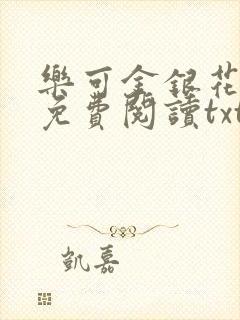 樂可金銀花
免費閱讀txt
凱嘉